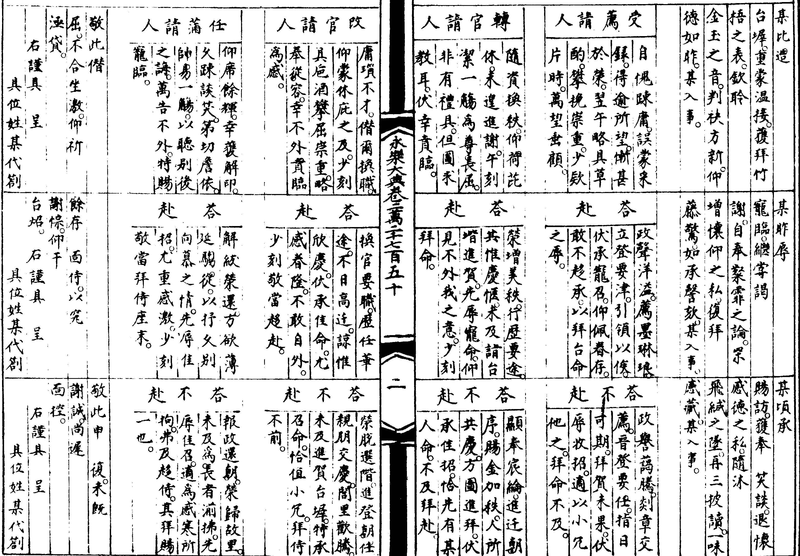 某比造
台墀重蒙溫接獲拜竹
梧之表欽聆
金玉之音判袂方新仰
德如昨某入事
受薦請人
自愧疎庸誤蒙采
錄得逾所望慚甚
於榮翌午略具草
酌攀挽崇重少欵
片時萬望垂顧
轉官請人
隨資換秩仰荷庇
休未遑進謝午刻
潔一觴為尊長屈
非有禮具但圖求
教耳伏幸賁臨
改官請人
庸瑣不才僭爾換職
仰蒙休庇之及少刻
具卮酒攀屈崇重略
奉從容幸不外賁臨
為感
任滿請人
仰席餘輝幸獲解印
久疎談笑弟切詹依
帥易一觴以聽別後
之誨萬告不外特賜
寵臨
敬此僭
屈不合坐激仰祈
涵貸
右謹具 呈
具位姓某代劄
某昨辱
寵臨繼辱謁
謝自奉 霏之論眾
增懷仰之私復拜
藤 如承謦欬某入事
答赴
政聲洋溢薦墨琳琅
立登要津引領以俟
伏承寵召仰佩眷存
敢不趨承以拜台命
之辱
答赴
榮增美秩行歷要途
共惟慶愜未及詣台
堦進賀先辱寵命仰
見不外我之意少刻
拜命
答赴
換官要職歷任華
途不日高迁諒惟
欣慶伏承佳命尤
感眷隆不敢自外
少刻敬當趨赴
答赴
解紱榮還方欲薄
迓騶從以抒久別
向慕之情先辱佳
招尤重感激少刻
敬當拜侍座末
餘存 面侍以究
謝悰仰干
台炤 右謹具 呈
具位姓某代劄
某頃承
賜訪獲奉 笑談退懷
感德之私隨沐
飛緘之墜再三披讀 味
感藏某入事
答不赴
政譽藹騰剡章交
薦晉登要任指日
可期拜賀未果伏
辱收招適以小冗
他之拜命不及
答不赴
顯奉宸綸進迁朝
序賜金加秩人所
共慶方圖進拜伏
承佳招恰先有某
人命不及拜赴
答不赴
榮脫選階進登朝任
親朋交慶閭里歡騰
未及進賀台墀特承
召命恰值小冗拜侍
不前
答不赴
報政還朝榮歸故里
未及為畏者湔拂先
辱佳召適為感寒所
拘弗及趨侍真拜賜
一也
敬此申 復未既
謝誠尚遲
面控
右謹具 呈
具位姓某代劄
永樂大典卷二萬二千七百五十
二